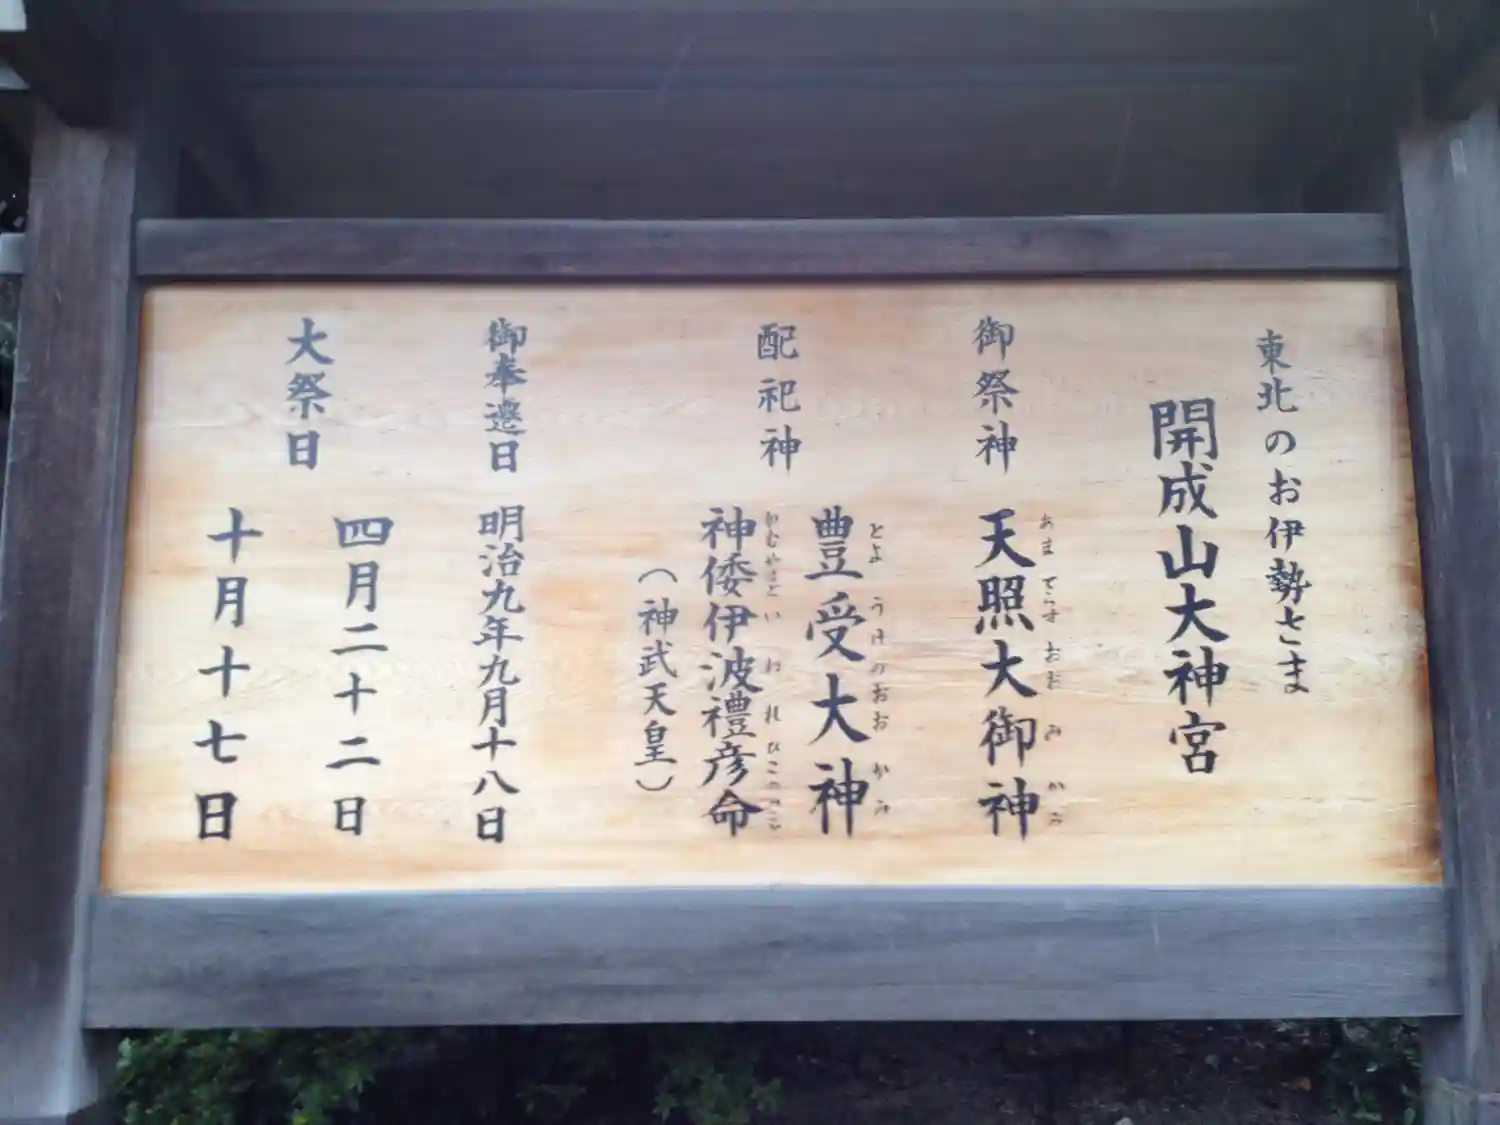 東北のお伊勢さま
開成山大神宮
御祭神
天照大御神
あまてらすおおみかみ
配祀神
豊受大神
とようけのおおかみ
神倭伊波禮彦命
かむやまといわれひこのみこと
（神武天皇）
御奉遷日
明治九年九月十八日
大祭日
四月二十二日
十月十七日